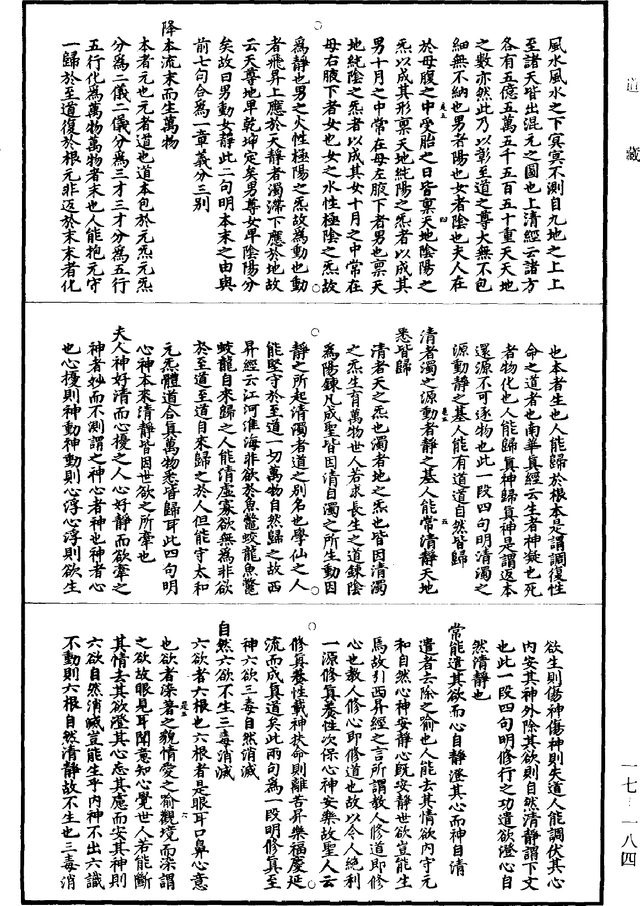 道藏
風水風水之下冥冥不測自九地之上上
至諸天皆出混元之圓也上清經云諸方
各有五億五萬五千五百五十重天天地
之數亦然此乃以彰至道之尊大無不包
細無不納也男者陽也女者陰也夫人在
於母腹之中受胎之日皆稟天地陰陽之
炁以成其形稟天地純陽之炁者以成其
男十月之中常在母左腋下者男也稟天
地純陰之炁者以成其女十月之中常在
母右腋下者女也女之水性極陰之炁故
為靜也男之火性極陽之炁故為動也動
者飛昇上應於天靜者濁滯下應於地故
云天尊地卑乾坤定矣男尊女卑陰陽分
矣故曰男動女靜此二句明本末之由與
前七句合為一章義分三別
降本流末而生萬物
本者元也元者道也道本包於元炁元炁
分為二儀二儀分為三才三才分為五行
五行化為萬物萬物者末也人能抱元守
一歸於至道復於根元非返於末末者化
也本者生也人能歸於根本是謂調復性
命之道者也南華真經云生者神凝也死
者物化也人能歸真神歸真神是謂返本
還源不可逐物也此一段四句明清濁之
源動靜之基人能有道道自然皆歸
清者濁之源動者靜之基人能常清靜天地
悉皆歸
清者天之炁也濁者地之炁也皆因清濁
之炁生育萬物世人若求長生之道鍊陰
為陽鍊凡成聖皆因清自濁之所生動因
靜之所起清濁者道之別名也學仙之人
能堅守於至道一切萬物自然歸之故西
昇經云江河淮海非欲於魚鼈蛟龍魚鼈
蛟龍自來歸之人能清虛寡欲無為非欲
於至道至道自來歸之於人但能守太和
元炁體道合真萬物悉皆歸耳此四句明
心神本來清靜皆因世欲之所牽也
夫人神好清而心擾之人心好靜而欲牽之
神者妙而不測謂之神心者神也神者心
也心擾則神動神動則心浮心浮則欲生
欲生則傷神傷神則失道人能調伏其心
內安其神外除其欲則自然清靜謂下文
也此一段四句明修行之功遣欲澄心自
然清靜也
常能遣其欲而心自靜澄其心而神自清
遣者去除之喻也人能去其情欲內守元
和自然心神安靜心既安靜世欲豈能生
焉故引西昇經之言所謂教人修道即修
心也教人修心即修道也故以令人絕利
一源修真養性次保心神安樂故聖人云
修真養性載神扶命則離苦昇樂福慶延
流而成真道矣此兩句為一段明修真至
神六欲三毒自然消滅
自然六欲不生三毒消滅
六欲者六根也六根者是眼耳口鼻心意
也欲者染著之貌情愛之喻觀境而染謂
之欲故眼見耳聞意知心覺世人若能斷
其情去其欲澄其心忘其慮而安其神則
六欲自然消滅豈能生乎內神不出六識
不動則六根自然清靜故不生也三毒消
一七-一八四